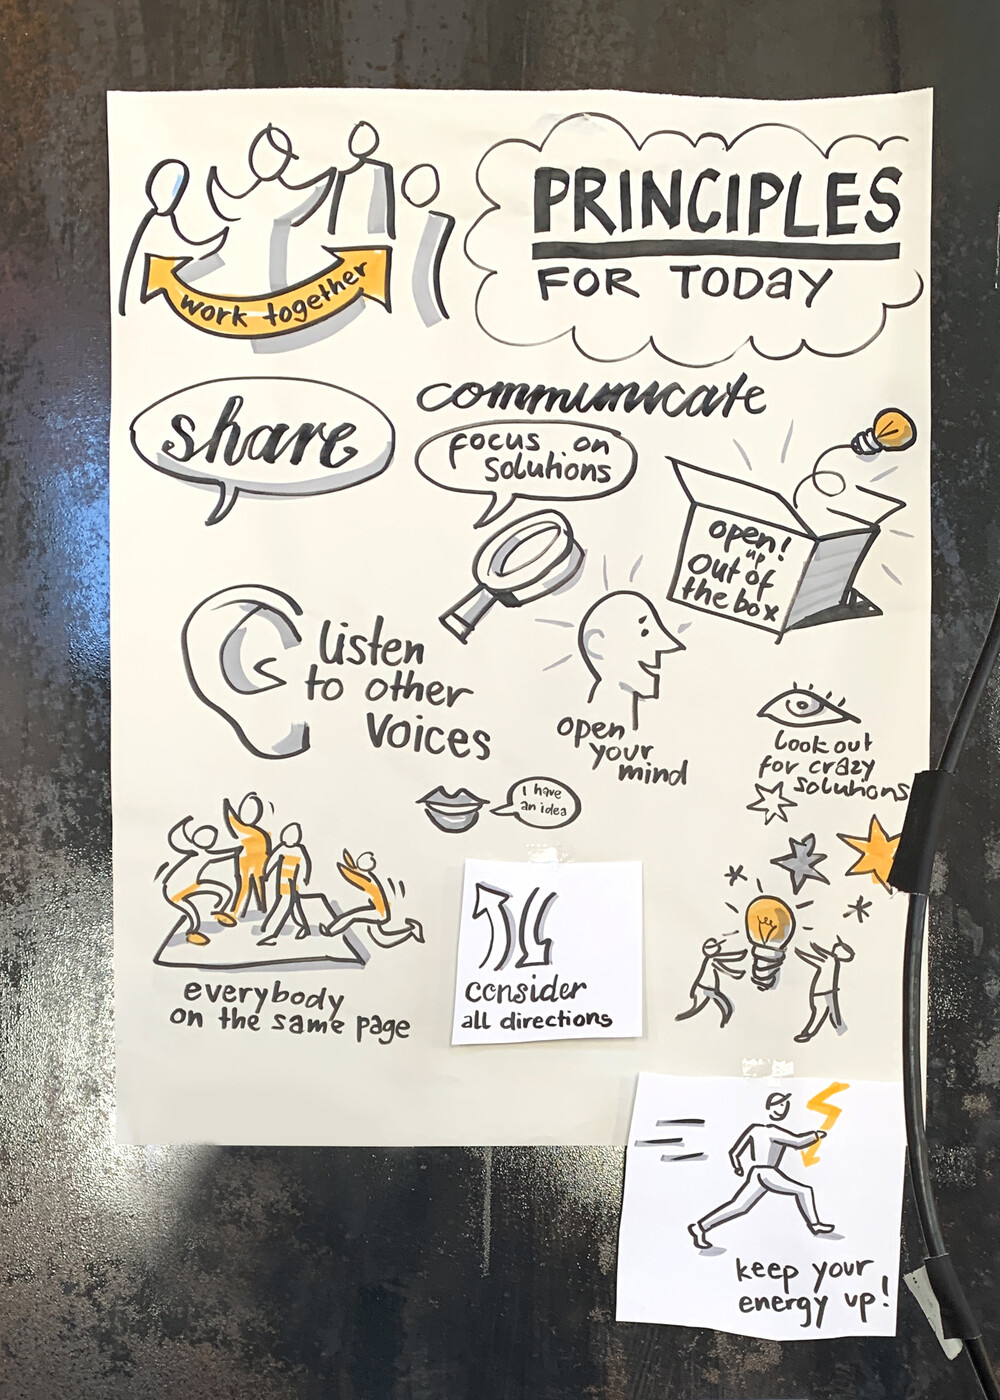 PRINCIPLES
FOR TODAY
work together
share
communicate
focus on
solutions
open!
up
out of
the box
listen
to other
voices
open
your
mind
look out
for crazy
solutions
I have
an idea
everybody
on the same page
consider
all directions
keep your
energy up!